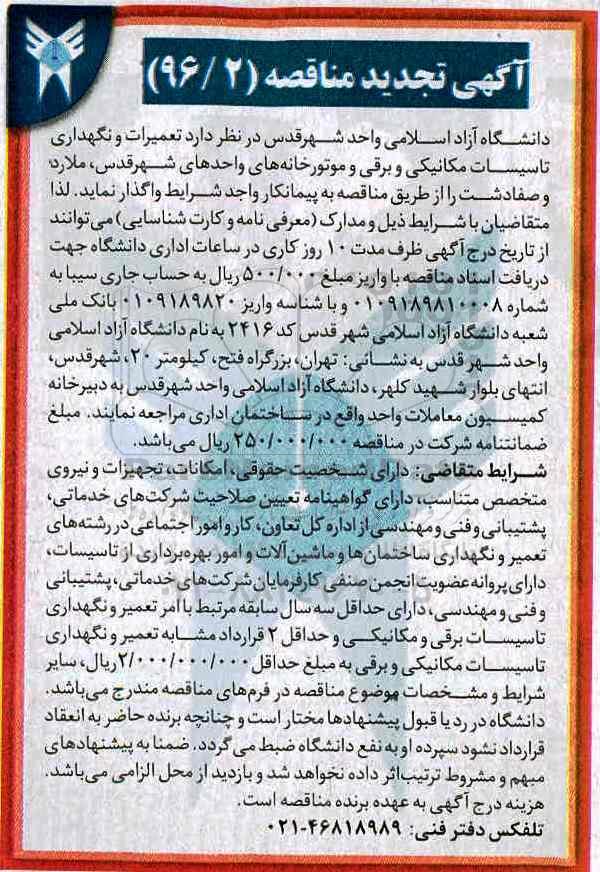 آگهی تجدید مناقصه (۹۶/۲)
دانشگاه آزاد اسلامی واحد شهرقدس در نظر دارد تعمیرات و نگهداری
تاسیسات مکانیکی و برقی و موتورخانه‌های واحدهای شهرقدس، ملارد،
و صفادشت را از طریق مناقصه به پیمانکار واجد شرایط واگذار نماید. لذا
متقاضیان با شرایط ذیل و مدارک (معرفی نامه و کارت شناسایی) می‌توانند
از تاریخ درج آگهی ظرف مدت ۱۰ روز کاری در ساعات اداری دانشگاه جهت
دریافت اسناد مناقصه با واریز مبلغ ۵۰۰/۰۰۰ ریال به حساب جاری سیبا به
شماره ۰۱۰۹۱۸۹۸۱۰۰۰۸ و با شناسه واریز ۰۱۰۹۱۸۹۸۲۰ بانک ملی
شعبه دانشگاه آزاد اسلامی شهر قدس کد ۲۴۱۶ به نام دانشگاه آزاد اسلامی
واحد شهر قدس به نشانی: تهران، بزرگراه فتح، کیلومتر ۲۰، شهرقدس،
انتهای بلوار شهید کلهر، دانشگاه آزاد اسلامی واحد شهرقدس به دبیرخانه
کمیسیون معاملات واحد واقع در ساختمان اداری مراجعه نمایند. مبلغ
ضمانتنامه شرکت در مناقصه ۲۵۰/۰۰۰/۰۰۰ ریال می‌باشد.
شرایط متقاضی: دارای شخصیت حقوقی، امکانات، تجهیزات و نیروی
متخصص متناسب، دارای گواهینامه تعیین صلاحیت شرکت‌های خدماتی،
پشتیبانی و فنی و مهندسی از اداره کل تعاون، کار و امور اجتماعی در رشته‌های
تعمیر و نگهداری ساختمان‌ها و ماشین‌آلات و امور بهره‌برداری از تاسیسات،
دارای پروانه عضویت انجمن صنفی کارفرمایان شرکت‌های خدماتی، پشتیبانی
و فنی و مهندسی، دارای حداقل سه سال سابقه مرتبط با امر تعمیر و نگهداری
تاسیسات برقی و مکانیکی و حداقل ۲ قرارداد مشابه تعمیر و نگهداری
تاسیسات مکانیکی و برقی به مبلغ حداقل ۲/۰۰۰/۰۰۰/۰۰۰ ریال، سایر
شرایط و مشخصات موضوع مناقصه در فرم‌های مناقصه مندرج می‌باشد.
دانشگاه در رد یا قبول پیشنهادها مختار است و چنانچه برنده حاضر به انعقاد
قرارداد نشود سپرده او به نفع دانشگاه ضبط می گردد. ضمنا به پیشنهادهای
مبهم و مشروط ترتیب‌اثر داده نخواهد شد و بازدید از محل الزامی می‌باشد.
هزینه درج آگهی به عهده برنده مناقصه است.
تلفکس دفتر فنی: ۴۶۸۱۸۹۸۹-۰۲۱